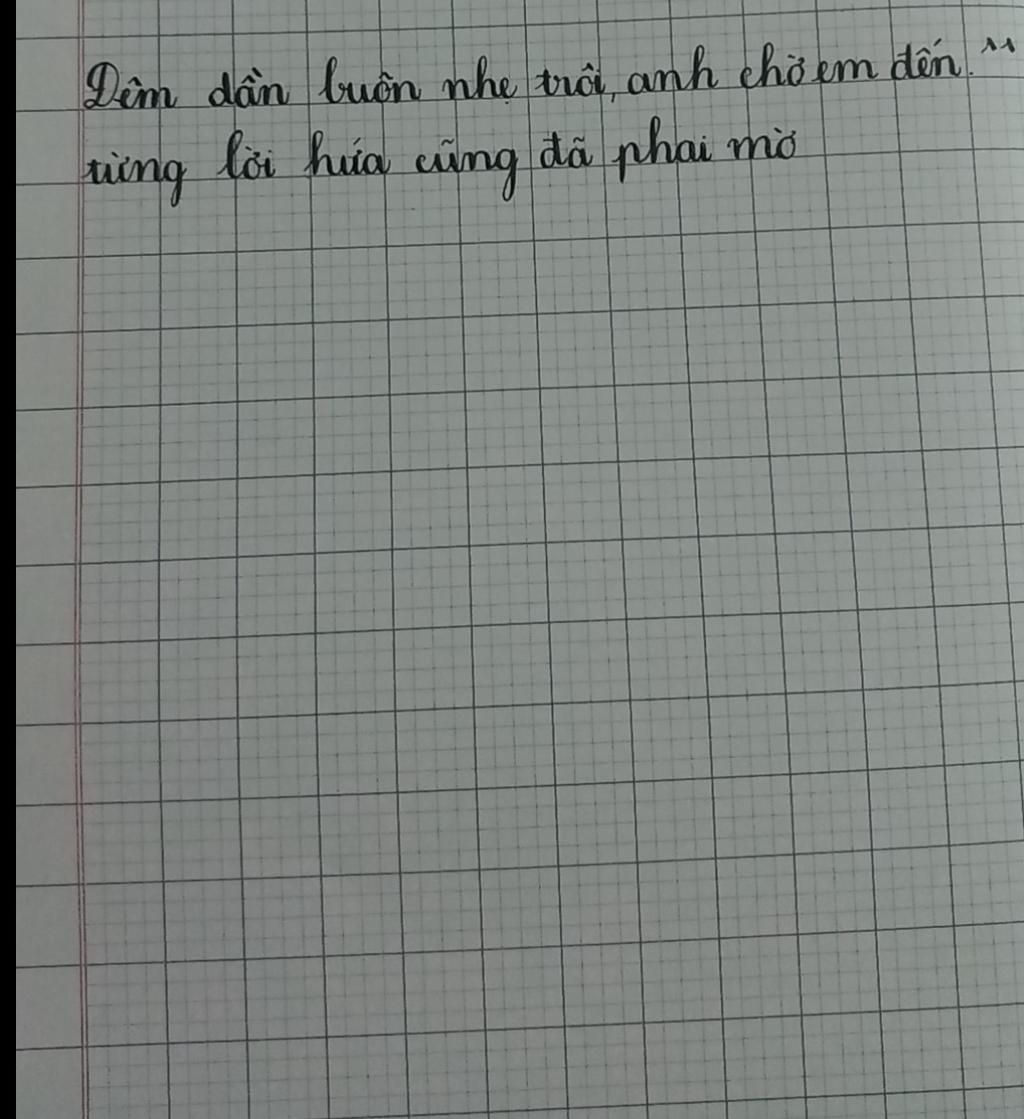 Đêm dần buôn nhẹ trôi, anh chờ em đến. ^^
từng lời hứa cũng đã phai mờ